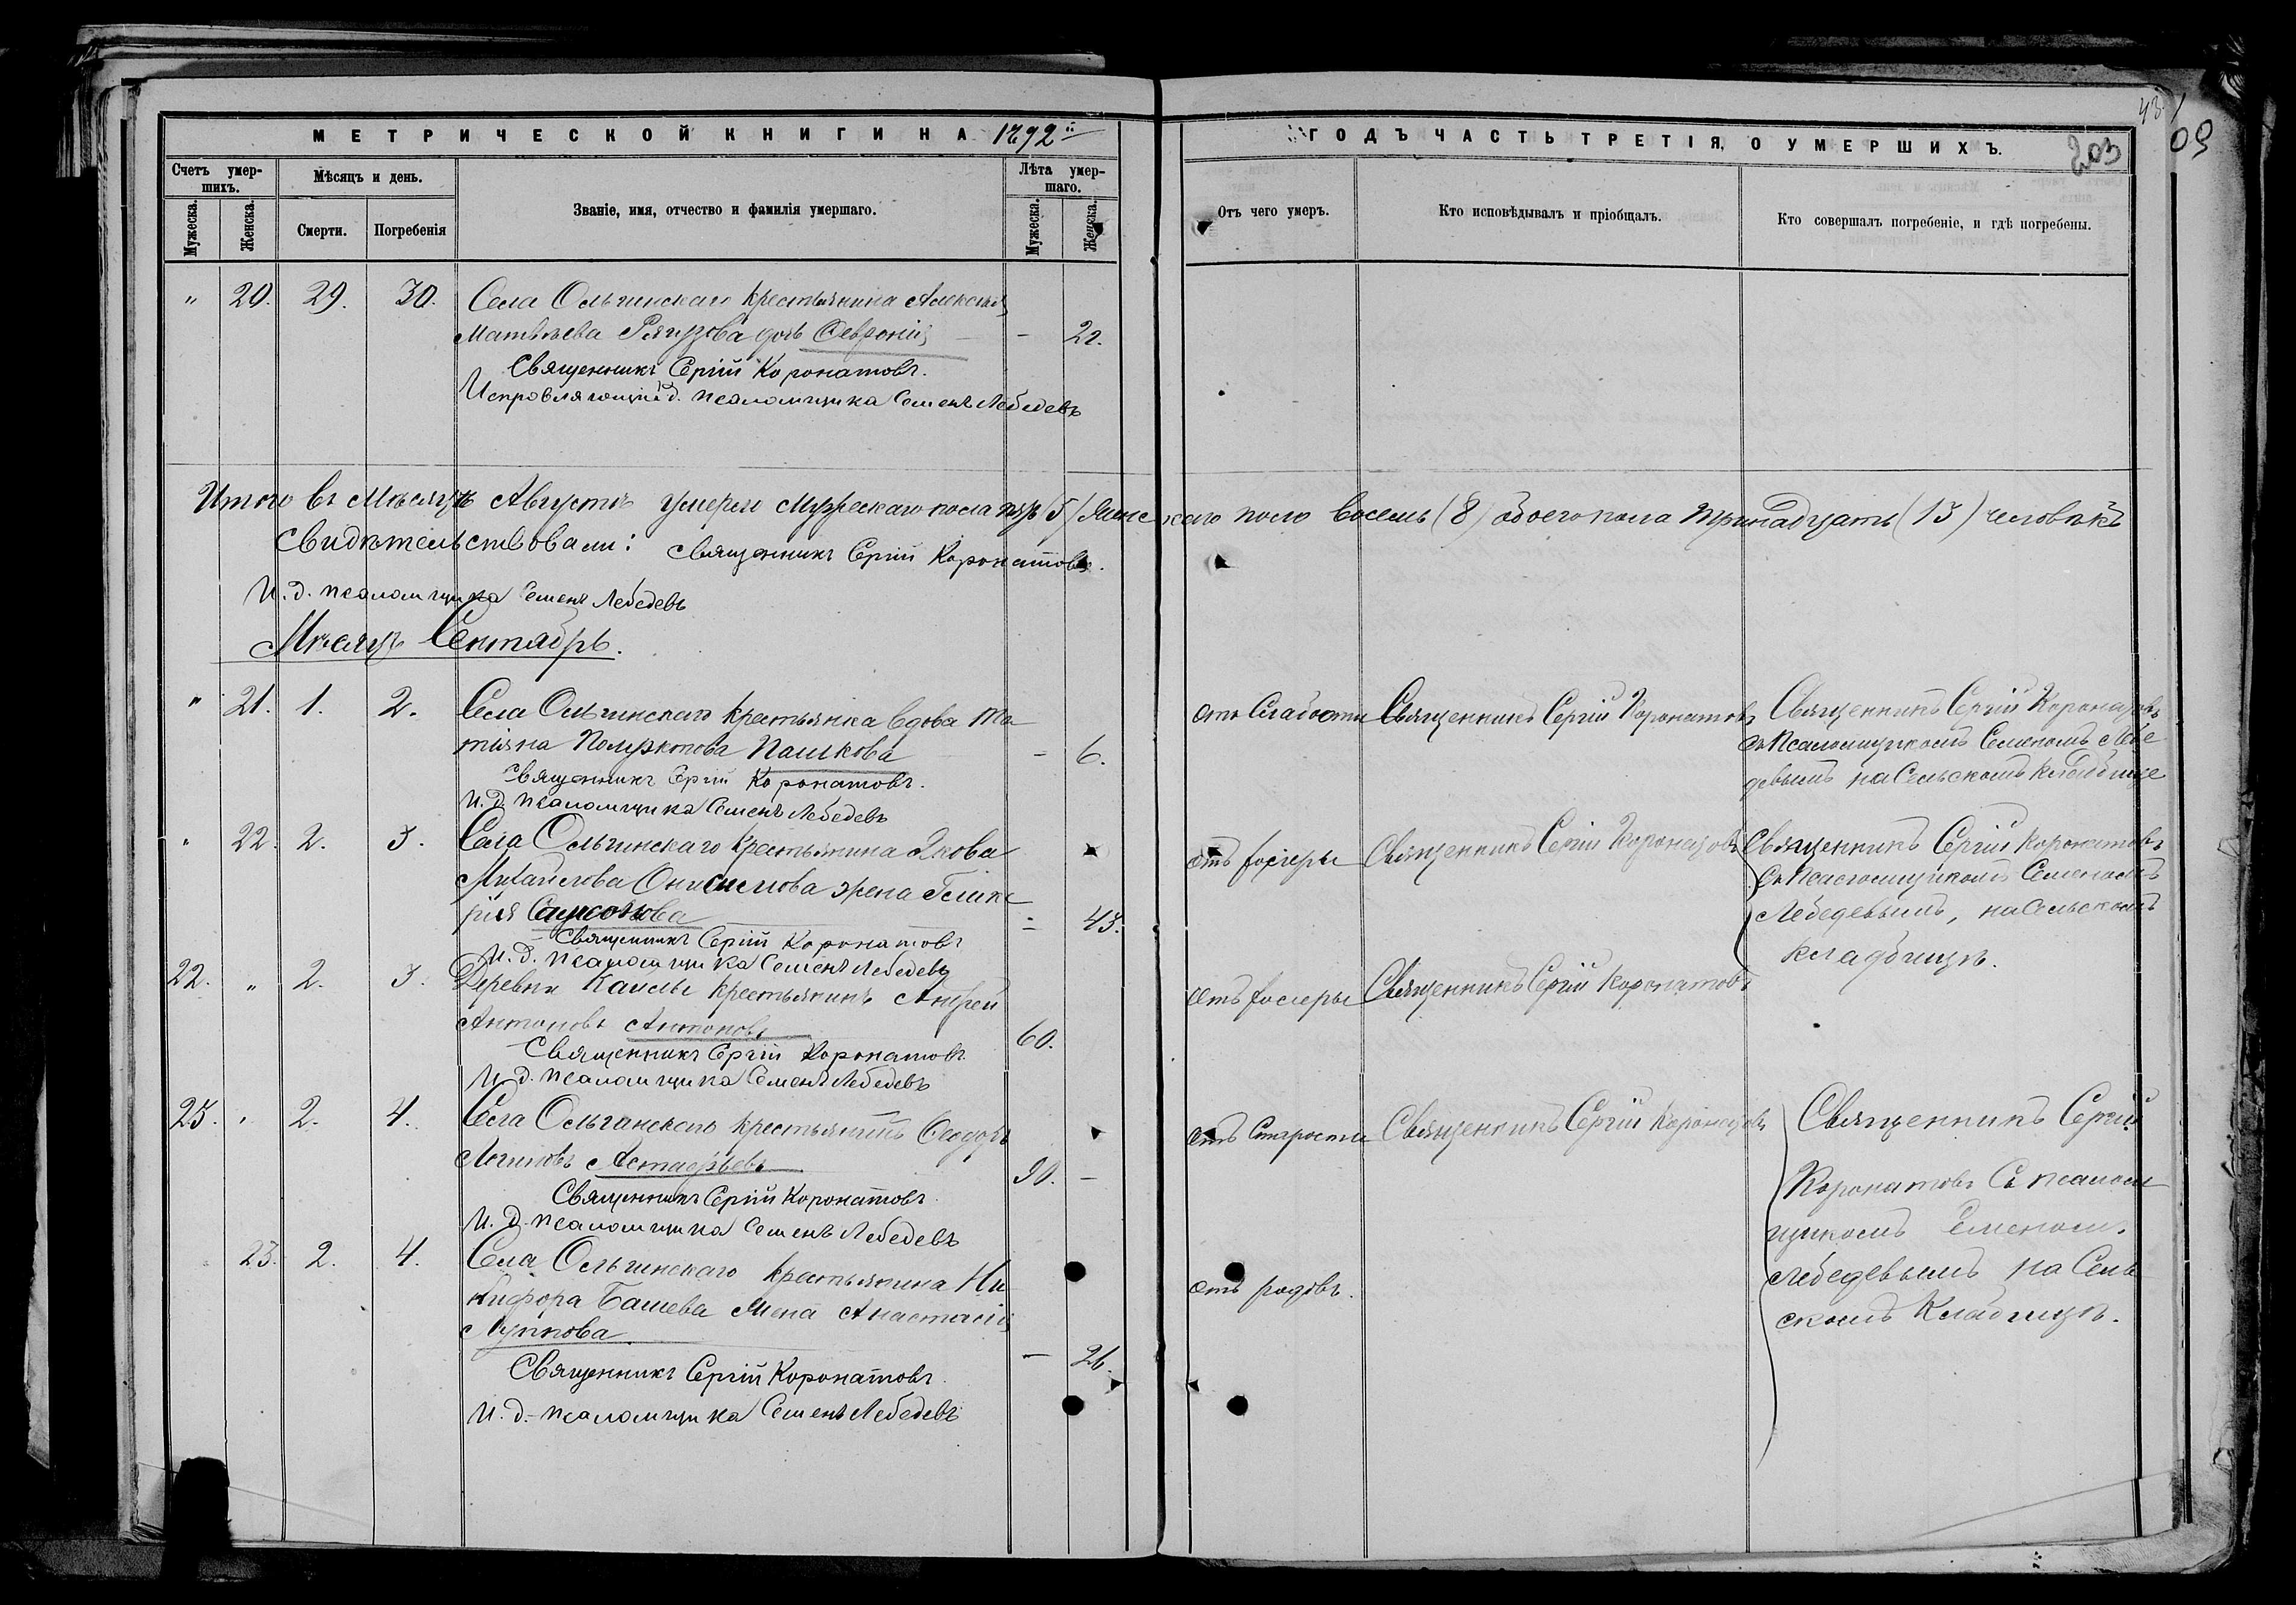 МЕТРИЧЕСКОЙ КНИГИ НА 1892 й
ГОДЪ ЧАСТЬ ТРЕТІЯ, О УМЕРШИХЪ.
203
Счетъ умер-
шихъ.
Мѣсяцъ и день.
Званіе, имя, отчество и фамилія умершаго.
Лѣта умер-
шаго.
Мужеска.
Женска.
Смерти.
Погребенія
Мужеска.
Женска.
Отъ чего умеръ.
Кто исповѣдывалъ и пріобщалъ.
Кто совершалъ погребеніе, и гдѣ погребены.
" 20. 29. 30. Села Ольгинскаго крестьянина Алексѣя
Матвѣева дочь Февронія — 22.
Священникъ Сергій Коронатовъ.
Исправляющій д. псаломщика Семенъ Лебедевъ
Итого въ Мѣсяцѣ Августѣ умерло мужескаго пола пять (5) женскаго пола восемь (8) обоего пола тринадцать (13) человѣкъ
Свидѣтельствовали: Священникъ Сергій Коронатовъ.
И. д. псаломщика Семенъ Лебедевъ
Мѣсяцъ Сентябрь.
" 21. 1. 2. Села Ольгинскаго крестьянка вдова Та
тіяна Пашкова — 6.
Священникъ Сергій Коронатовъ.
И. д. псаломщика Семенъ Лебедевъ
отъ Слабости Священникъ Сергій Коронатовъ Священникъ Сергій Коронатовъ
съ Псаломщикомъ Семеномъ Лебе
девымъ на Сельскомъ кладбище
" 22. 2. 3. Села Ольгинскаго крестьянина Якова
Михайлова Онисимова жена Глике
рія Самсонова — 43.
Священникъ Сергій Коронатовъ
И. д. псаломщика Семенъ Лебедевъ
отъ холеры Священникъ Сергій Коронатовъ Священникъ Сергій Коронатовъ
съ Псаломщикомъ Семеномъ
Лебедевымъ, на Сельскомъ
кладбищѣ.
22. " 2. 3. Деревни крестьянинъ Андрей
Антоновъ Антоновъ 60.
Священникъ Сергій Коронатовъ
И. д. псаломщика Семенъ Лебедевъ
отъ холеры Священникъ Сергій Коронатовъ
23. " 2. 4. Села Ольгинскаго крестьянинъ Ѳеодоръ
Логиновъ Астафьевъ 90. —
Священникъ Сергій Коронатовъ
И. д. псаломщика Семенъ Лебедевъ
отъ Старости Священникъ Сергій Коронатовъ Священникъ Сергій
Коронатовъ съ псалом
щикомъ Семеномъ
Лебедевымъ на Сель
скомъ Кладбищѣ.
23. 2. 4. Села Ольгинскаго крестьянина Ни
кифора Башева жена Анастасія
Луппова — 26.
Священникъ Сергій Коронатовъ.
И. д. псаломщика Семенъ Лебедевъ
отъ родовъ.